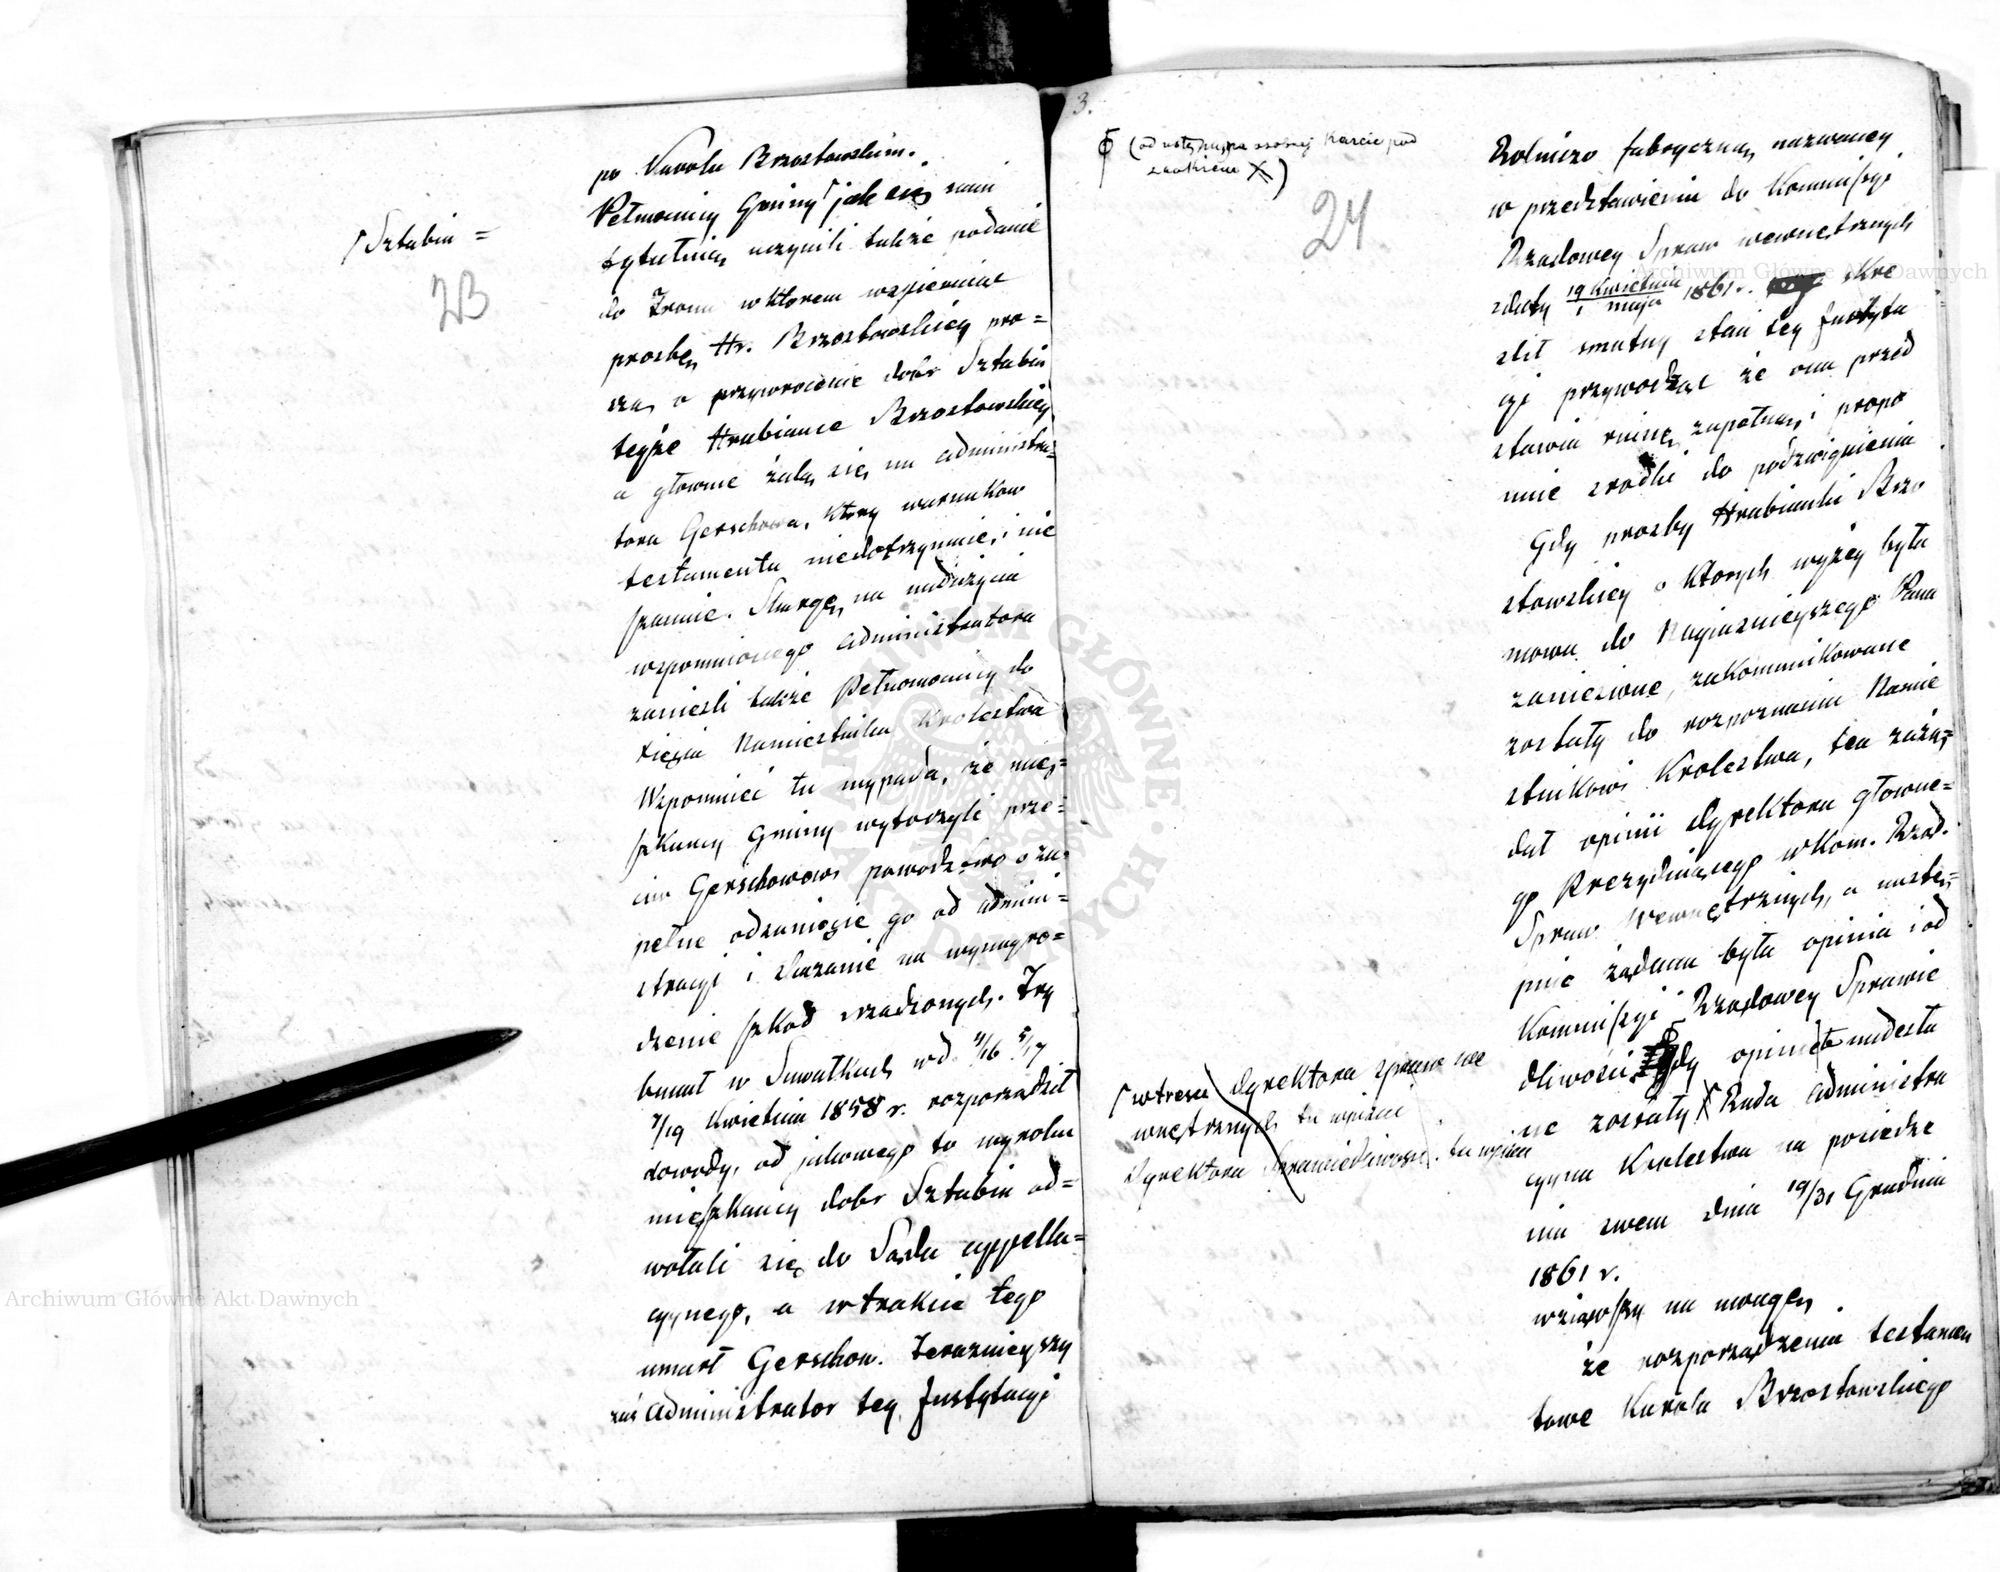 po Karolu Brzostowskim.
Pełnomocnicy Gminy ⌈ jak się sam
⌈ Sztabin =
23
tytułują, uczynili także podanie
do Tronu w którem wspierając
prosbę Hr. Brzostowskiey pro=
szą o przywrócenie dobr Sztabin
teyże Hrabiance Brzostowskiey
a głownie żalą się na administra=
tora Gerschowa, ktory warunkow
testamentu niedotrzymuie, i nie
Skargę na nadużycia
wspomnionego administratora
zanieśli także Pełnomocnicy do
Xięcia Namiestnika Krolestwa
Wspomnieć tu wypada, że mie=
szkańcy Gminy wytoczyli prze=
ciw Gerschowowi powodztwo o zu=
pełne odsunięcie go od admini=
stracyi i skazanie na wynagro=
dzenie szkod zrządzonych. Try
bunał w Suwałkach wd. 4/16 5/17
7/19 Kwietnia 1858 r. rozporządził
dowody, od jakowego to wyroku
mieszkańcy dobr Sztabin od=
wołali się do Sądu appella=
cyjnego, a w trakcie tego
umarł Gerschow. Teraznieyszy
zaś administrator tey Instytucyi
3.
(od ustępu na osobney karcie pod
znakiem X)
24
Rolniczo fabryczną nazwaney
w przedstawieniu do Kommissyi
Rządowey Spraw wewnętrznych
z daty 19 Kwietnia / 1 maja 1861 r. skre
slił smutny stan tey Instytu
cyi przywodząc że ona przed
stawia ruinę zupełną, i propo
nuie srodki do podzwignienia
Gdy prosby Hrabianki Brzo
stowskiey o ktorych wyżey była
mowa do Nayiasnieyszego Pana
zaniesione, zakommunikowane
zostały do rozpoznania Namie
stnikowi Krolestwa, ten zażą=
dał opinii dyrektora głowne=
go Prezyduiącego w Kom. Rząd.
Spraw Wewnętrznych, a nastę=
pnie żądana była opinia i od
Kommissyi Rządowey Sprawie
dliwości, gdy opinie te nadesła
ne zostały Rada administra
cyjna Krolestwa na posiedze
niu swem dnia 19/31 Grudnia
1861 r.
⌈ w tresci dyrektora spraw we
wnętrznych tu wpisać
dyrektora Sprawiedliwości tu wpisać
wziąwszy na uwagę.
że rozporządzenia testamen
towe Karola Brzostowskiego
Archiwum Główne Akt Dawnych
Archiwum Główne Akt Dawnych
ARCHIWUM GŁÓWNE AKT DAWNYCH